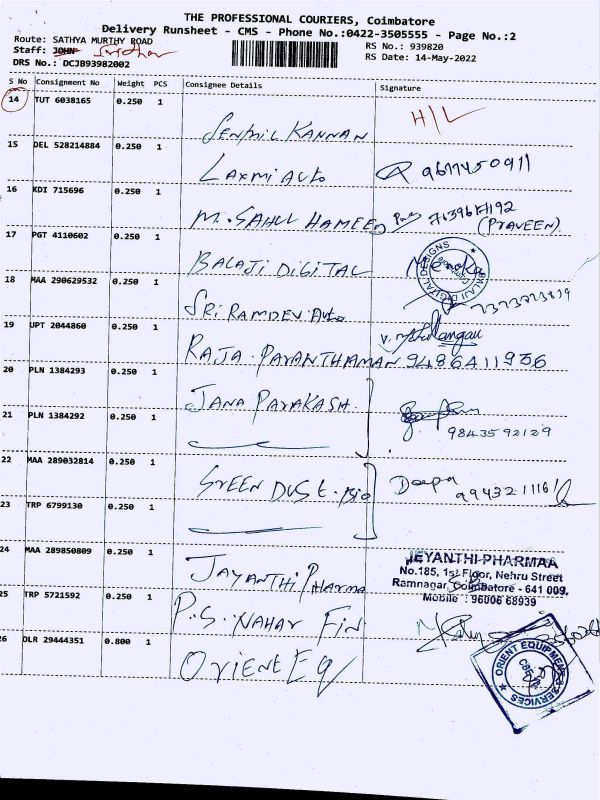 THE PROFESSIONAL COURIERS, Coimbatore
Delivery Runsheet - CMS - Phone No.:0422-3505555 - Page No.:2
Route: SATHYA MURTHY ROAD
RS No.: 939820
Staff: JOHN Sridhar
RS Date: 14-May-2022
DRS No.: DCJB93982002
S No Consignment No Weight PCS Consignee Details Signature
14 TUT 6038165 0.250 1 SENTHIL KANNAN H/L
15 DEL 528214884 0.250 1 LAXMI AUTO
16 KDI 715696 0.250 1 M. SAHUL HAMEED (PRAVEEN)
17 PGT 4110602 0.250 1 BALAJI DIGITAL Menaka
BALAJI DIGITAL DESIGNS
18 MAA 290629532 0.250 1 SRI RAMDEV Auto
19 UPT 2044860 0.250 1 RAJA PAYANTHAMAN 9486411956
20 PLN 1384293 0.250 1 JANA PAYAKASH
21 PLN 1384292 0.250 1 9843592129
22 MAA 289032814 0.250 1 Deepa 9943211161
23 TRP 6799130 0.250 1
24 MAA 289850809 0.250 1 JAYANTHI Pharma
JEYANTHI PHARMAA
No.185, 1st Floor, Nehru Street
Ramnagar, Coimbatore - 641 009.
Mobile : 96006 68939
25 TRP 5721592 0.250 1 P.S. NAHAR FIN
26 DLR 29444351 0.800 1 ORIENT EQ
ORIENT EQUIPMENT & SERVICES
CBE